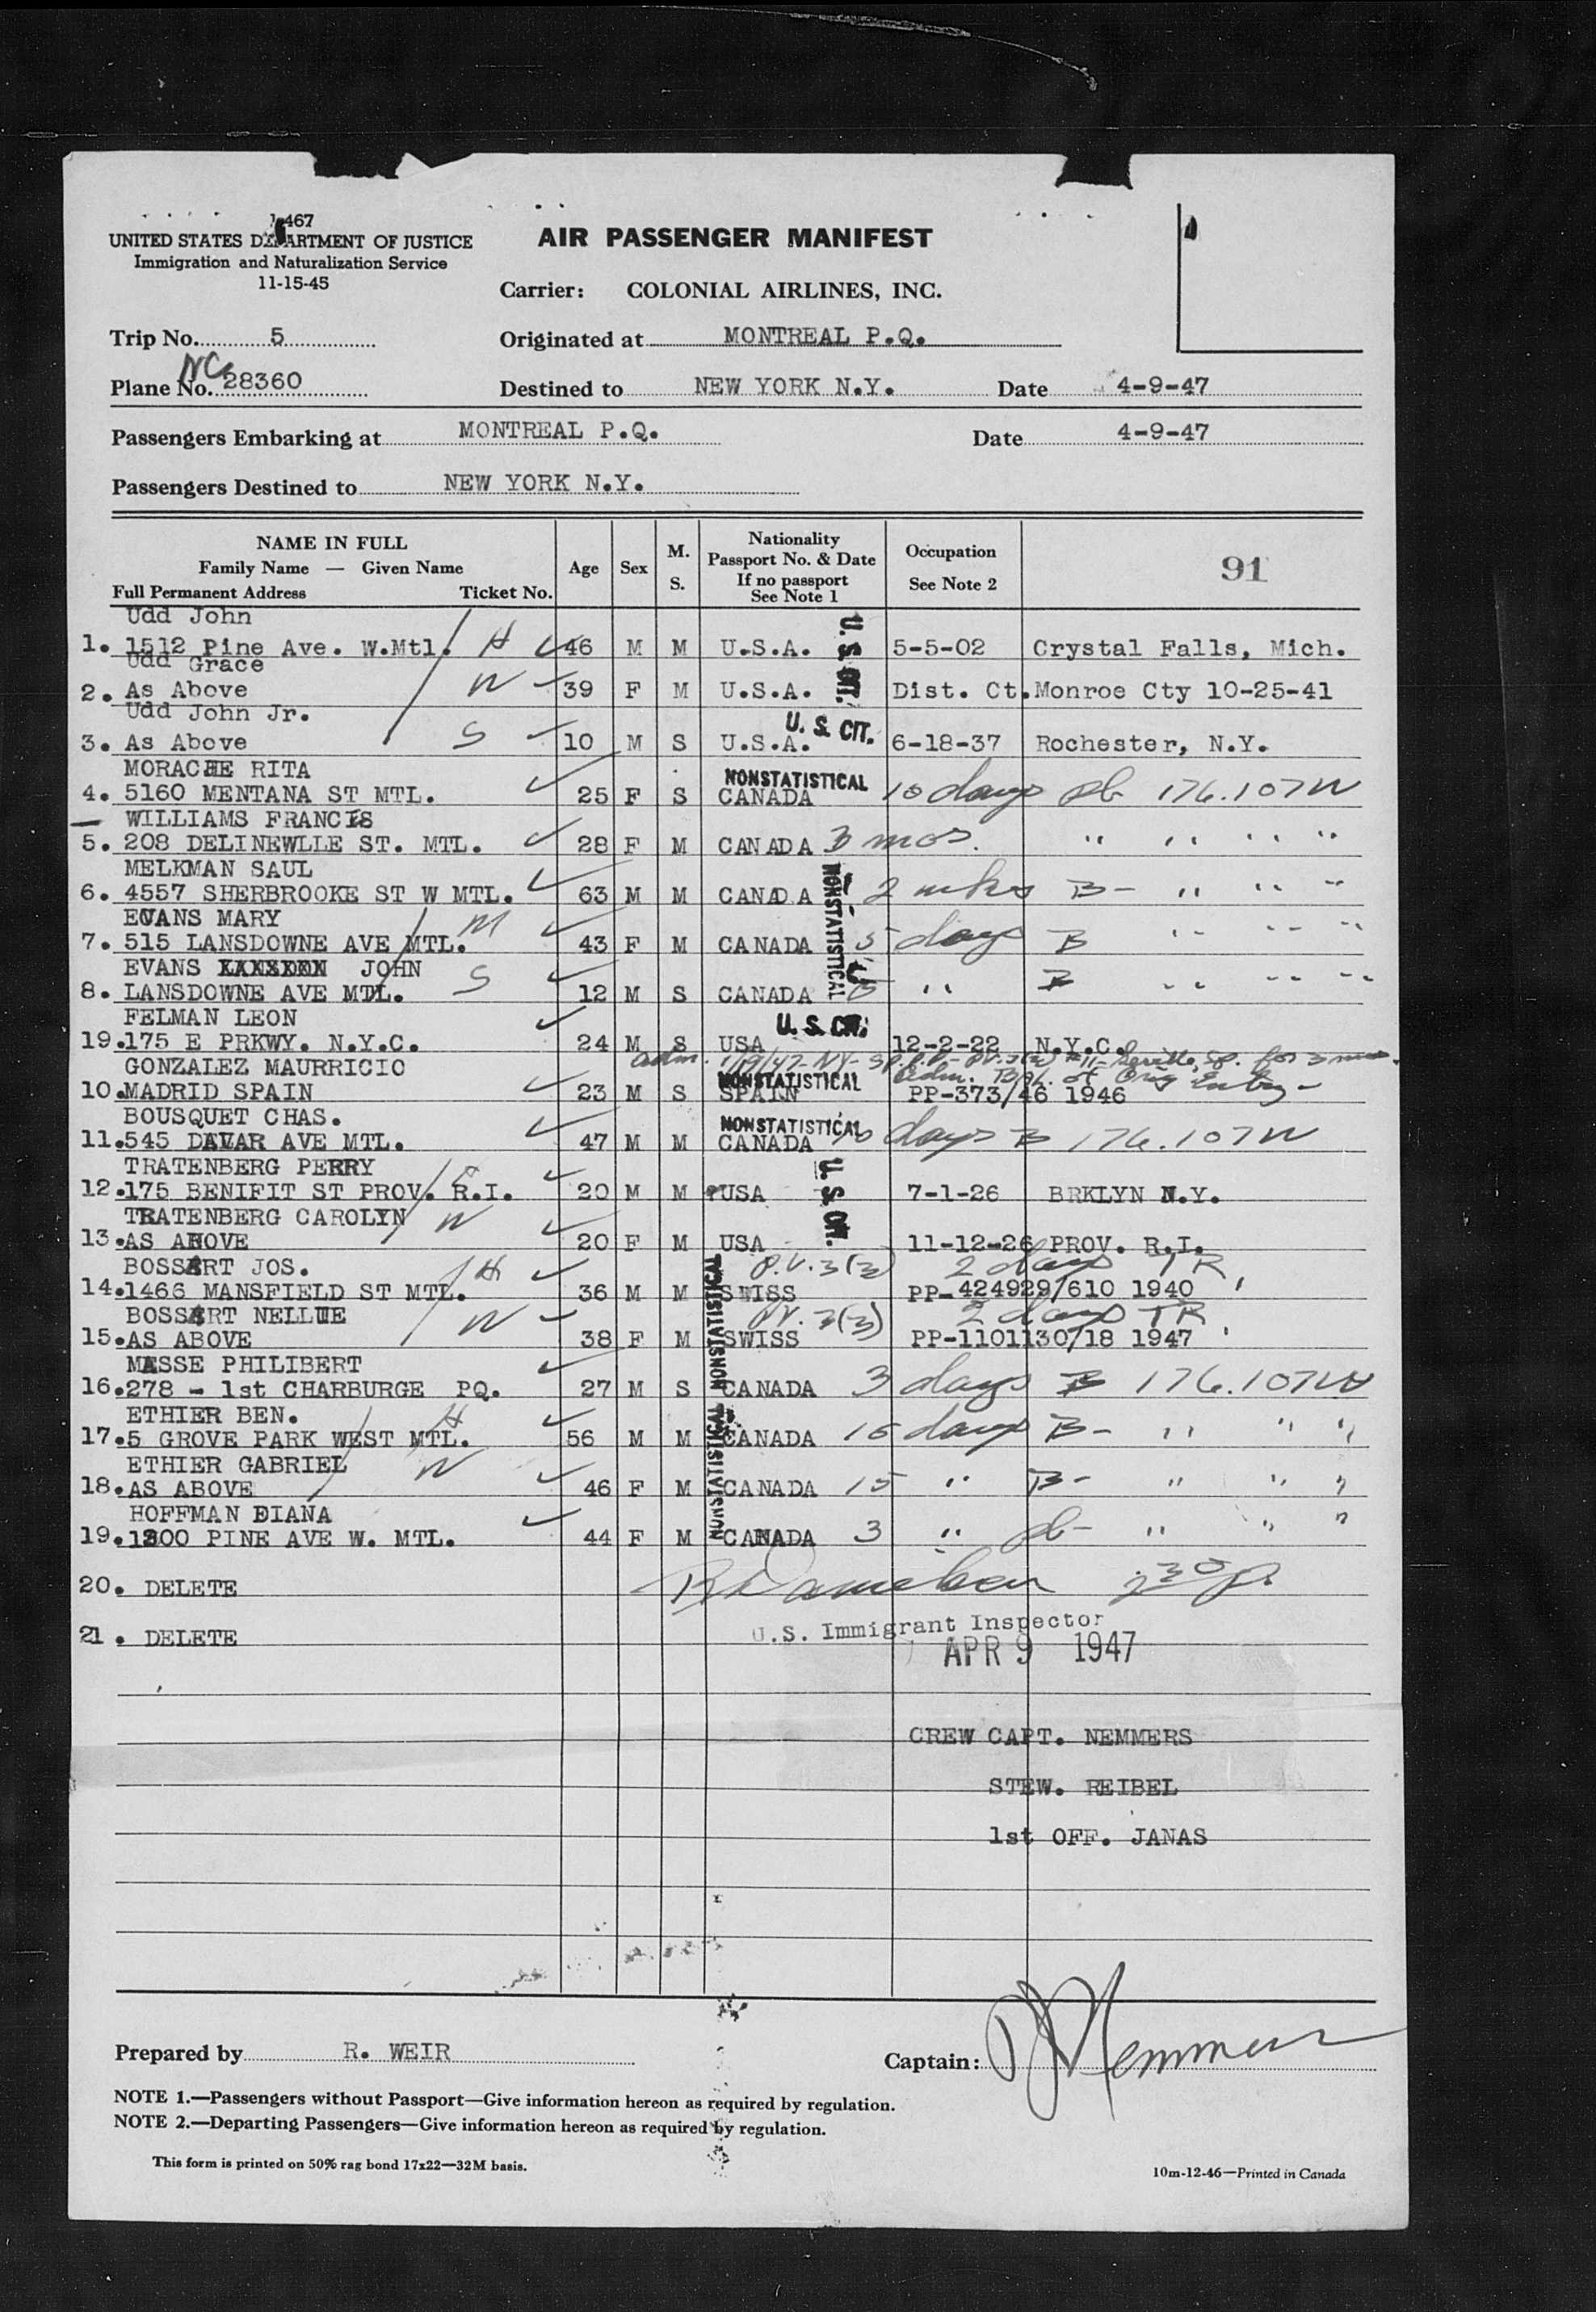 1-467
UNITED STATES DEPARTMENT OF JUSTICE
Immigration and Naturalization Service
11-15-45
AIR PASSENGER MANIFEST
Carrier: COLONIAL AIRLINES, INC.
Trip No. 5
Originated at MONTREAL P.Q.
NC
Plane No. 28360
Destined to NEW YORK N.Y. Date 4-9-47
Passengers Embarking at MONTREAL P.Q. Date 4-9-47
Passengers Destined to NEW YORK N.Y.
NAME IN FULL
Family Name — Given Name
Full Permanent Address Ticket No.
Age Sex M. S.
Nationality
Passport No. & Date
If no passport
See Note 1
Occupation
See Note 2
91
Udd John
1. 1512 Pine Ave. W.Mtl. H 46 M M U.S.A. U.S. CIT. 5-5-02 Crystal Falls, Mich.
Udd Grace
2. As Above W 39 F M U.S.A. Dist. Ct. Monroe Cty 10-25-41
Udd John Jr.
3. As Above S 10 M S U.S.A. U.S. CIT. 6-18-37 Rochester, N.Y.
MORACHE RITA
4. 5160 MENTANA ST MTL. 25 F S NONSTATISTICAL CANADA 10 days Pb 176.107W
WILLIAMS FRANCIS
5. 208 DELINEWLLE ST. MTL. 28 F M CANADA 3 mos. " " " "
MELKMAN SAUL
6. 4557 SHERBROOKE ST W MTL. 63 M M CANADA NONSTATISTICAL 2 wks B- " " "
EVANS MARY
7. 515 LANSDOWNE AVE MTL. M 43 F M CANADA 5 days B " " "
EVANS JOHN
8. LANSDOWNE AVE MTL. S 12 M S CANADA 5 " B " " "
FELMAN LEON
19. 175 E PRKWY. N.Y.C. 24 M S USA U.S. CIT. 12-2-22 N.Y.C.
adm. 1/9/47-NY- for 3 mos.
GONZALEZ MAURRICIO
Adm. Bal. of Orig Entry-
10. MADRID SPAIN 23 M S NONSTATISTICAL SPAIN PP-373/46 1946
BOUSQUET CHAS.
11. 545 DAVAR AVE MTL. 47 M M NONSTATISTICAL CANADA days B 176.107W
TRATENBERG PERRY
12. 175 BENIFIT ST PROV. R.I. 20 M M USA U.S. CIT. 7-1-26 BRKLYN N.Y.
TRATENBERG CAROLYN W
13. AS ABOVE 20 F M USA 11-12-26 PROV. R.I.
BOSSART JOS. H P.V. 3(2) 2 days TR
14. 1466 MANSFIELD ST MTL. 36 M M NONSTATISTICAL SWISS PP-424929/610 1940
BOSSART NELLIE W P.V. 3(2) 2 days TR
15. AS ABOVE 38 F M NONSTATISTICAL SWISS PP-1101130/18 1947
MASSE PHILIBERT
16. 278 - 1st CHARBURGE PQ. 27 M S CANADA 3 days B 176.107W
ETHIER BEN. H
17. 5 GROVE PARK WEST MTL. 56 M M NONSTATISTICAL CANADA 15 days B- " " "
ETHIER GABRIEL W
18. AS ABOVE 46 F M CANADA 15 " B- " " "
HOFFMAN DIANA
19. 1300 PINE AVE W. MTL. 44 F M CANADA 3 " Pb- " " "
20. DELETE 2 30 p.
21. DELETE U.S. Immigrant Inspector
APR 9 1947
CREW CAPT. NEMMERS
STEW. REIBEL
1st OFF. JANAS
Prepared by R. WEIR
Captain: Nemmers
NOTE 1.—Passengers without Passport—Give information hereon as required by regulation.
NOTE 2.—Departing Passengers—Give information hereon as required by regulation.
This form is printed on 50% rag bond 17x22—32M basis.
10m-12-46—Printed in Canada